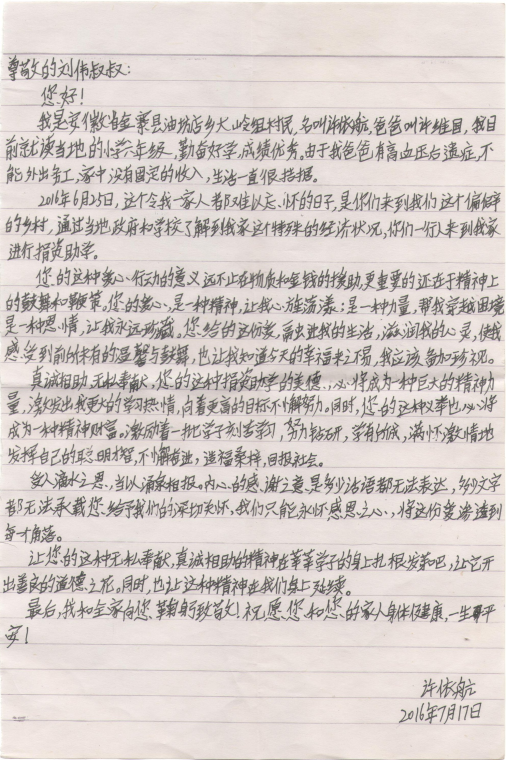 尊敬的刘伟叔叔:
您好!
我是安徽省金寨县油坊店乡大山岭组村民,名叫许依航,爸爸叫许维国,我目
前就读当地的小学六年级,勤奋好学,成绩优秀。由于我爸爸有高血压后遗症,不
能外出务工,家中没有固定的收入,生活一直很拮据。
2016年6月25日,这个令我一家人都难以忘怀的日子,是你们来到我们这个偏僻
的乡村,通过当地政府和学校了解到我家这个特殊的经济状况,你们一行人来到我家
进行捐资助学。
您的这种爱心行动的意义远不止在物质和金钱的援助,更重要的还在于精神上
的鼓舞和鞭策。您的爱心,是一种精神,让我心旌荡漾;是一种力量,帮我穿越困境
是一种恩情,让我永远珍藏。您给的这份爱,融进我的生活,滋润我的心灵,使我
感受到前所未有的温馨与鼓舞,也让我知道今天的幸福来之不易,我应该备加珍视。
真诚相助,无私奉献,您的这种捐资助学的美德,必将成为一种巨大的精神力
量,激发出我更大的学习热情,向着更高的目标不懈努力。同时,您的这种义举也必将
成为一种精神财富。激励着一批学子刻苦学习,努力钻研,学有所成,满怀激情地
发挥自己的聪明才智,不懈奋进,造福桑梓,回报社会。
受人滴水之恩,当以涌泉相报。内心的感谢之意是多少话语都无法表达,多少文字
都无法承载您给予我们的深切关怀,我们只能永怀感恩之心,将这份爱传递到
每个角落。
让您的这种无私奉献,真诚相助的精神在莘莘学子的身上扎根发芽吧,让它开
出善良的道德之花。同时,也让这种精神在我们身上延续。
最后,我和全家向您鞠躬致敬!祝愿您和您的家人身体健康,一生平
安!
许依航
2016年7月17日